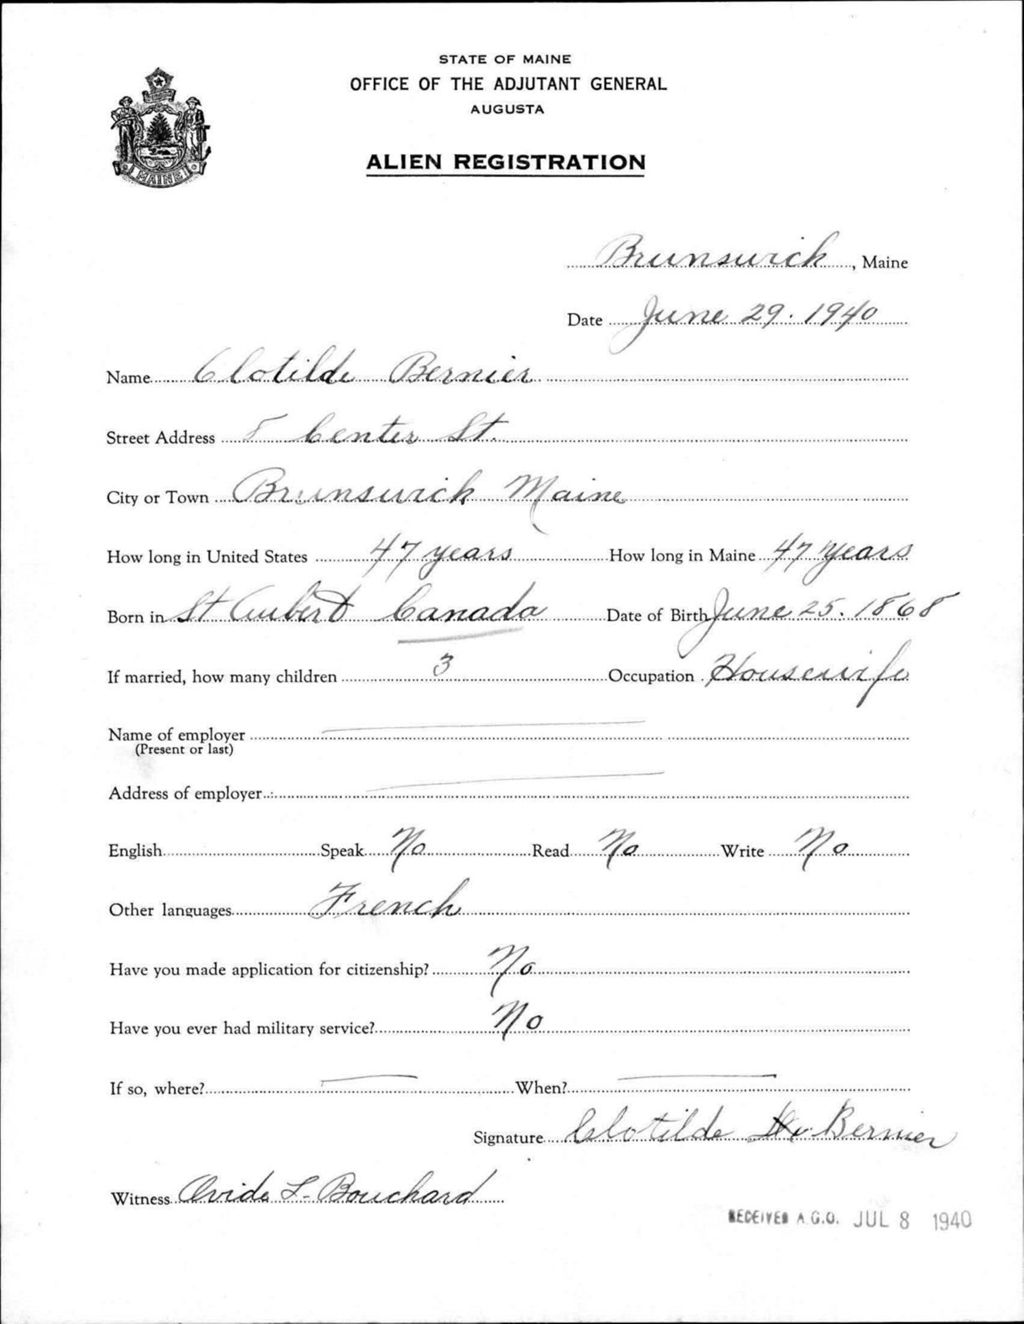 STATE OF MAINE
OFFICE OF THE ADJUTANT GENERAL
AUGUSTA
ALIEN REGISTRATION
MAINE
Brunswick, Maine
Date June 29. 1940
Name Clotilde Bernier
Street Address 8 Center St.
City or Town Brunswick Maine
How long in United States 47 years How long in Maine 47 years
Born in St Aubert Canada Date of Birth June 25. 1868
If married, how many children 3 Occupation Housewife
Name of employer
(Present or last)
Address of employer
English Speak No Read No Write No
Other languages French
Have you made application for citizenship? No
Have you ever had military service? No
If so, where? When?
Signature Clotilde Bernier
Witness Ovide L. Bouchard
RECEIVED A.G.O. JUL 8 1940